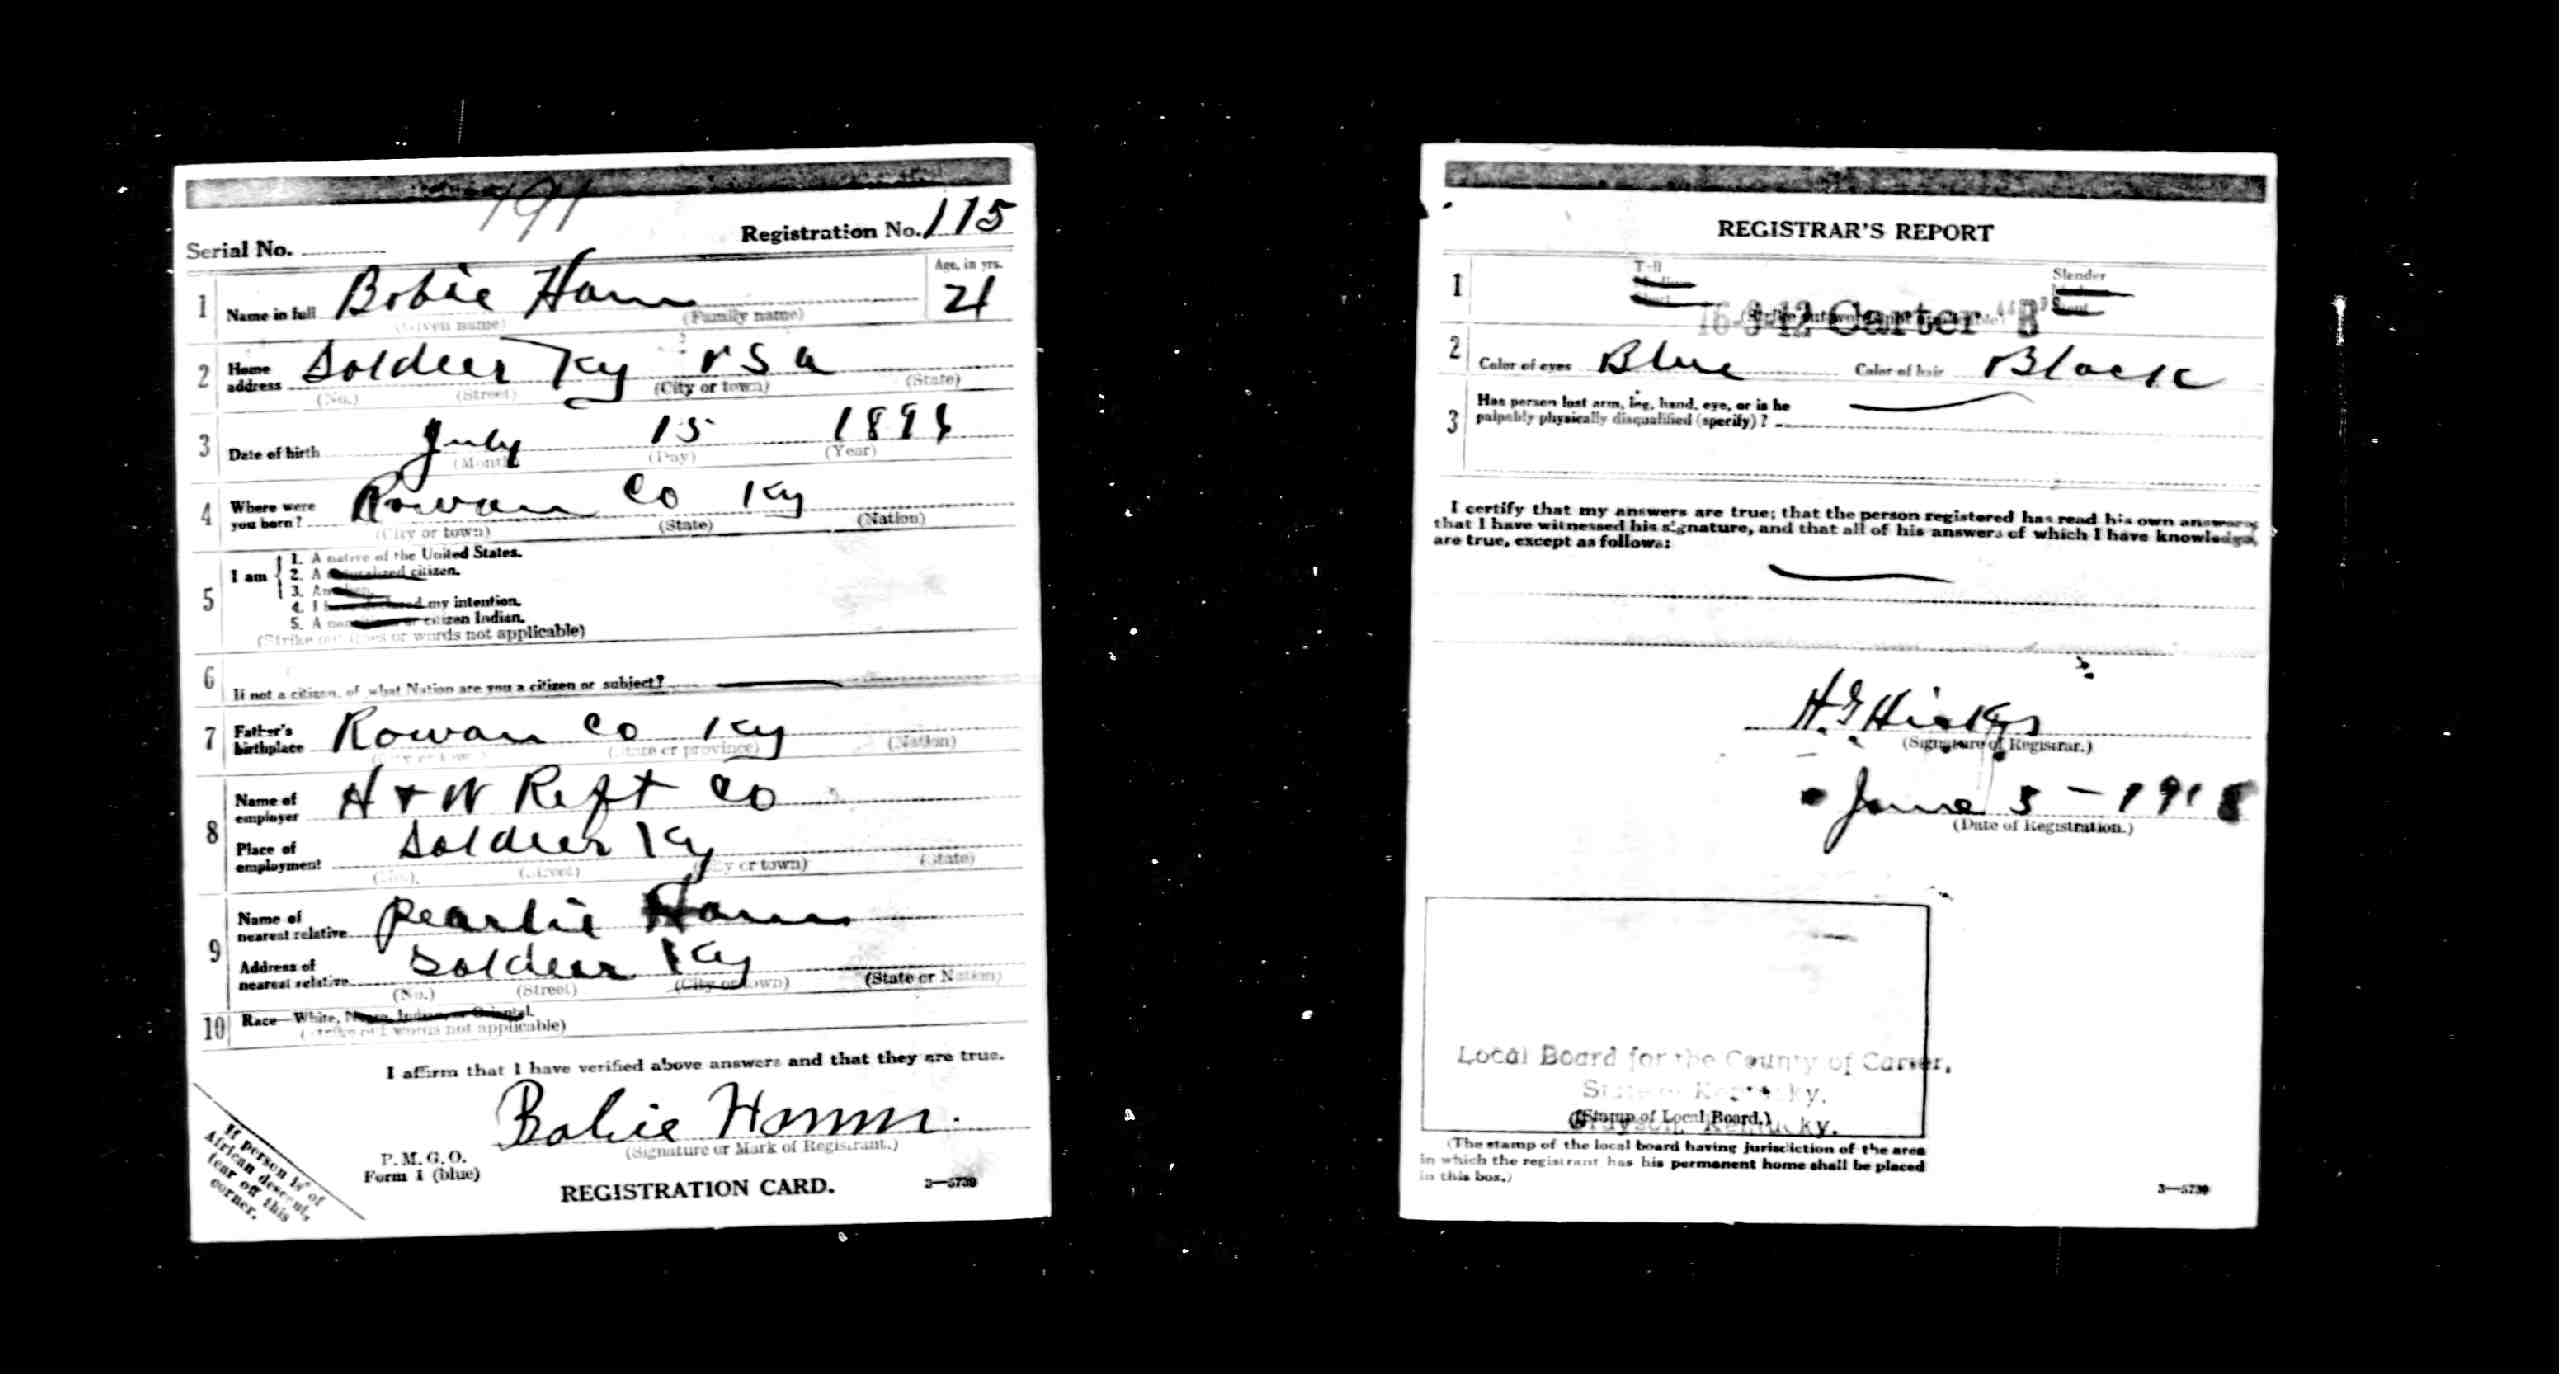 191
Serial No. Registration No. 115
1 Name in full Bobie Ham Age, in yrs. 21
(Given name) (Family name)
2 Home address Soldier Ky U S a
(No.) (Street) (City or town) (State)
3 Date of birth July 15 1896
(Month) (Day) (Year)
4 Where were you born? Rowan Co Ky
(City or town) (State) (Nation)
5 I am
1. A native of the United States.
2. A naturalized citizen.
3. An alien.
4. I have declared my intention.
5. A citizen Indian.
(Strike out lines or words not applicable)
6 If not a citizen, of what Nation are you a citizen or subject?
7 Father's birthplace Rowan Co Ky
(City or town) (State or province) (Nation)
8 Name of employer H & W Reft Co
Place of employment Soldier Ky
(No.) (Street) (City or town) (State)
9 Name of nearest relative Pearlie Ham
Address of nearest relative Soldier Ky
(No.) (Street) (City or town) (State or Nation)
10 Race—White, Negro, Indian, or Oriental.
(Strike out words not applicable)
I affirm that I have verified above answers and that they are true.
Bobie Hamm.
(Signature or Mark of Registrant.)
P. M. G. O.
Form 1 (blue)
REGISTRATION CARD. 3—5739
If person is of
African descent,
tear off this
corner.
REGISTRAR'S REPORT
1 Tall Slender
Carter
2 Color of eyes Blue Color of hair Black
3 Has person lost arm, leg, hand, eye, or is he
palpably physically disqualified (specify)?
I certify that my answers are true; that the person registered has read his own answers;
that I have witnessed his signature, and that all of his answers of which I have knowledge,
are true, except as follows:
(Signature of Registrar.)
June 5 - 1918
(Date of Registration.)
Local Board for the County of Carter,
State of Kentucky.
(Stamp of Local Board.)
Grayson, Kentucky.
(The stamp of the local board having jurisdiction of the area
in which the registrant has his permanent home shall be placed
in this box.)
3—5739